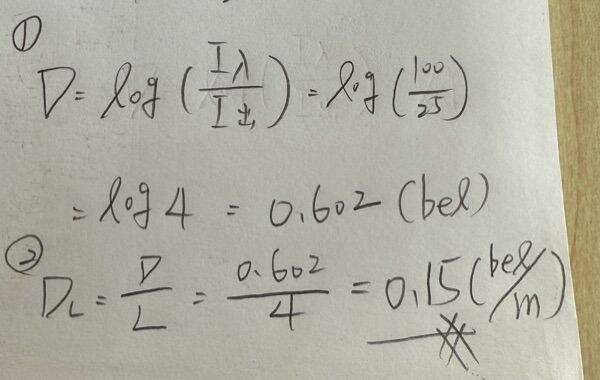 ①
D = log (I入/I出) = log (100/25)
= log 4 = 0.602 (bel)
② D_L = D/L = 0.602/4 = 0.15 (bel/m)